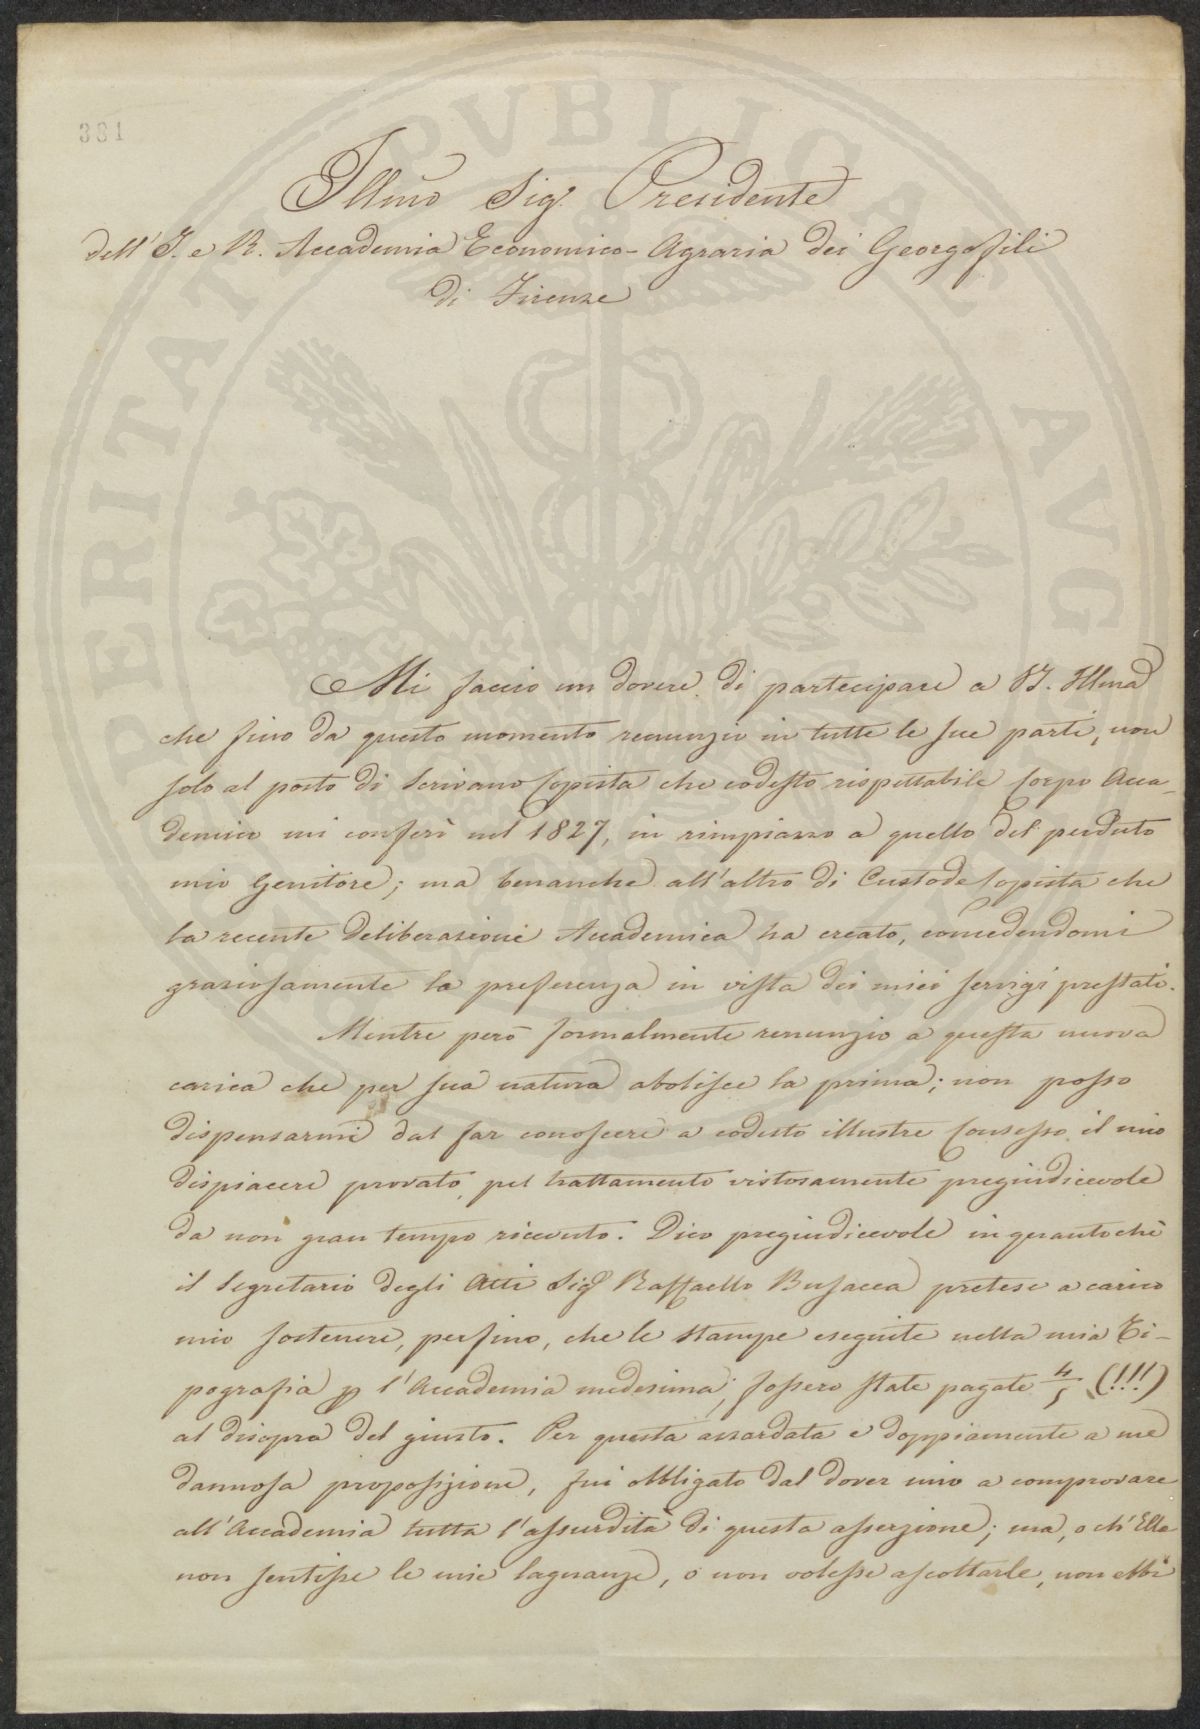 381
Illmo Sig. Presidente
dell' I. e R. Accademia Economico-Agraria dei Georgofili
di Firenze
Mi faccio un dovere di partecipare a V.S. Illma
che fino da questo momento renunzio in tutte le sue parti, non
solo al posto di Scrivano Copista che codesto rispettabile Corpo Acca-
demico mi conferì nel 1827, in rimpiazzo a quello del perduto
mio Genitore; ma benanche all'altro di Custode Copista che
la recente Deliberazione Accademica ha creato, concedendomi
graziosamente la preferenza in vista dei miei servigi prestati.
Mentre però formalmente renunzio a questa nuova
carica che per sua natura abolisce la prima; non posso
dispensarmi dal far conoscere a codesto illustre Consesso il mio
dispiacere provato, pel trattamento vistosamente pregiudicevole
da non gran tempo ricevuto. Dico pregiudicevole inquantochè
il Segretario degli Atti Sig. Raffaello Busacca pretese a carico
mio sostenere, perfino, che le stampe eseguite nella mia Ti-
pografia p l'Accademia medesima, fossero state pagate 4/5 (!!!)
al disopra del giusto. Per questa azzardata e doppiamente a me
dannosa proposizione, fui obbligato dal dover mio a comprovare
all'Accademia tutta l'assurdità di questa asserzione; ma, o ch'Ella
non sentisse le mie lagnanze, o non volesse ascoltarle, non ebbi
PUBLICAE
PROSPERITATI
AUGENDAE